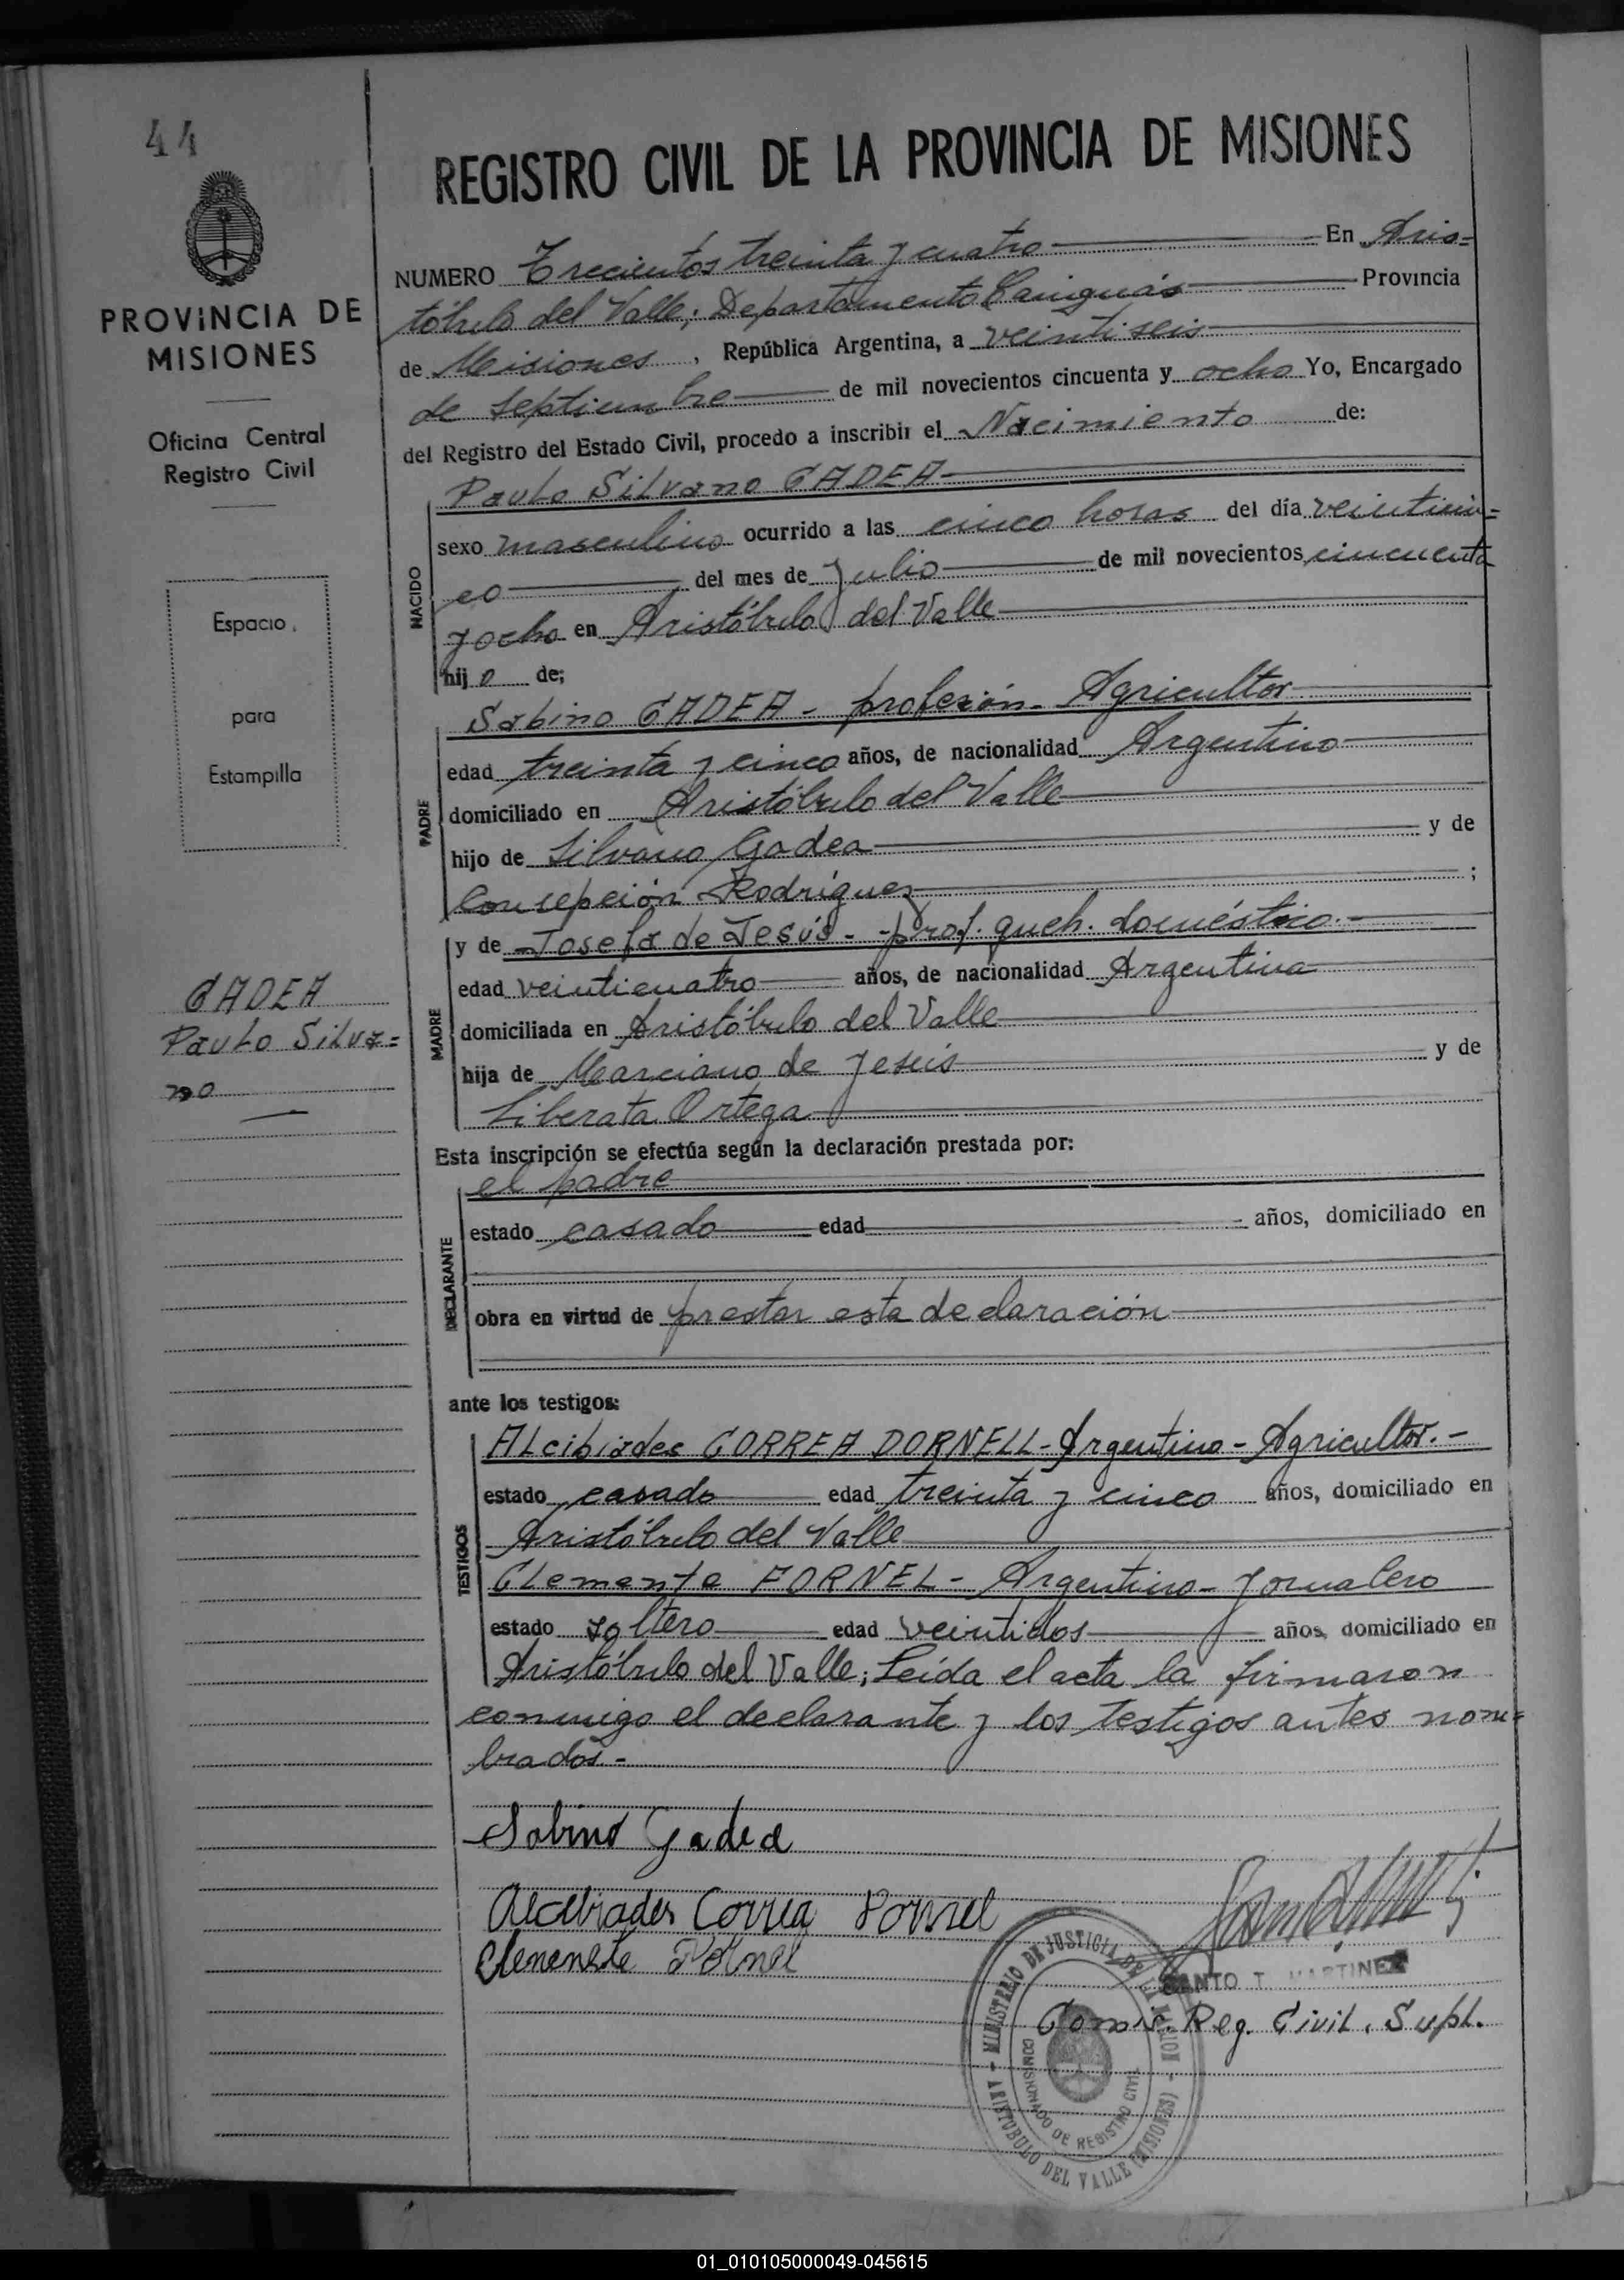 44
REGISTRO CIVIL DE LA PROVINCIA DE MISIONES
PROVINCIA DE
MISIONES
Oficina Central
Registro Civil
Espacio
para
Estampilla
GADEA
Paulo Silva=
no
NUMERO Trecientos treinta y cuatro En Aris=
tóbulo del Valle; Departamento Cainguás Provincia
de Misiones, República Argentina, a veintiseis
de septiembre de mil novecientos cincuenta y ocho Yo, Encargado
del Registro del Estado Civil, procedo a inscribir el Nacimiento de:
Paulo Silvano GADEA
NACIDO
sexo masculino ocurrido a las cinco horas del día veinticin=
co del mes de Julio de mil novecientos cincuenta
y ocho en Aristóbulo del Valle
hijo de;
PADRE
Sabino GADEA - profesión - Agricultor
edad treinta y cinco años, de nacionalidad Argentino
domiciliado en Aristóbulo del Valle
hijo de Silvano Gadea y de
Consepción Rodríguez ;
MADRE
y de Josefa de Jesús - prof. queh. doméstico.-
edad veinticuatro años, de nacionalidad Argentina
domiciliada en Aristóbulo del Valle
hija de Marciano de Jesús y de
Liberata Ortega
Esta inscripción se efectúa según la declaración prestada por:
DECLARANTE
el padre
estado casado edad años, domiciliado en
obra en virtud de prestar esta declaración
ante los testigos:
TESTIGOS
Alcibiades CORREA DORNELL - Argentino - Agricultor.-
estado casado edad treinta y cinco años, domiciliado en
Aristóbulo del Valle
Clemente FORNEL - Argentino - Jornalero
estado soltero edad veintidos años, domiciliado en
Aristóbulo del Valle; Leída el acta la firmaron
conmigo el declarante y los testigos antes nom=
brados.-
Sabino Gadea
Alcibiades Correa Dornel
Clemente Dornel
SANTO T. MARTINEZ
Comis. Reg. Civil. Supl.
MINISTERIO DE JUSTICIA DE LA NACION
COMISIONADO DE REGISTRO CIVIL
ARISTOBULO DEL VALLE (MISIONES)
01_010105000049-045615